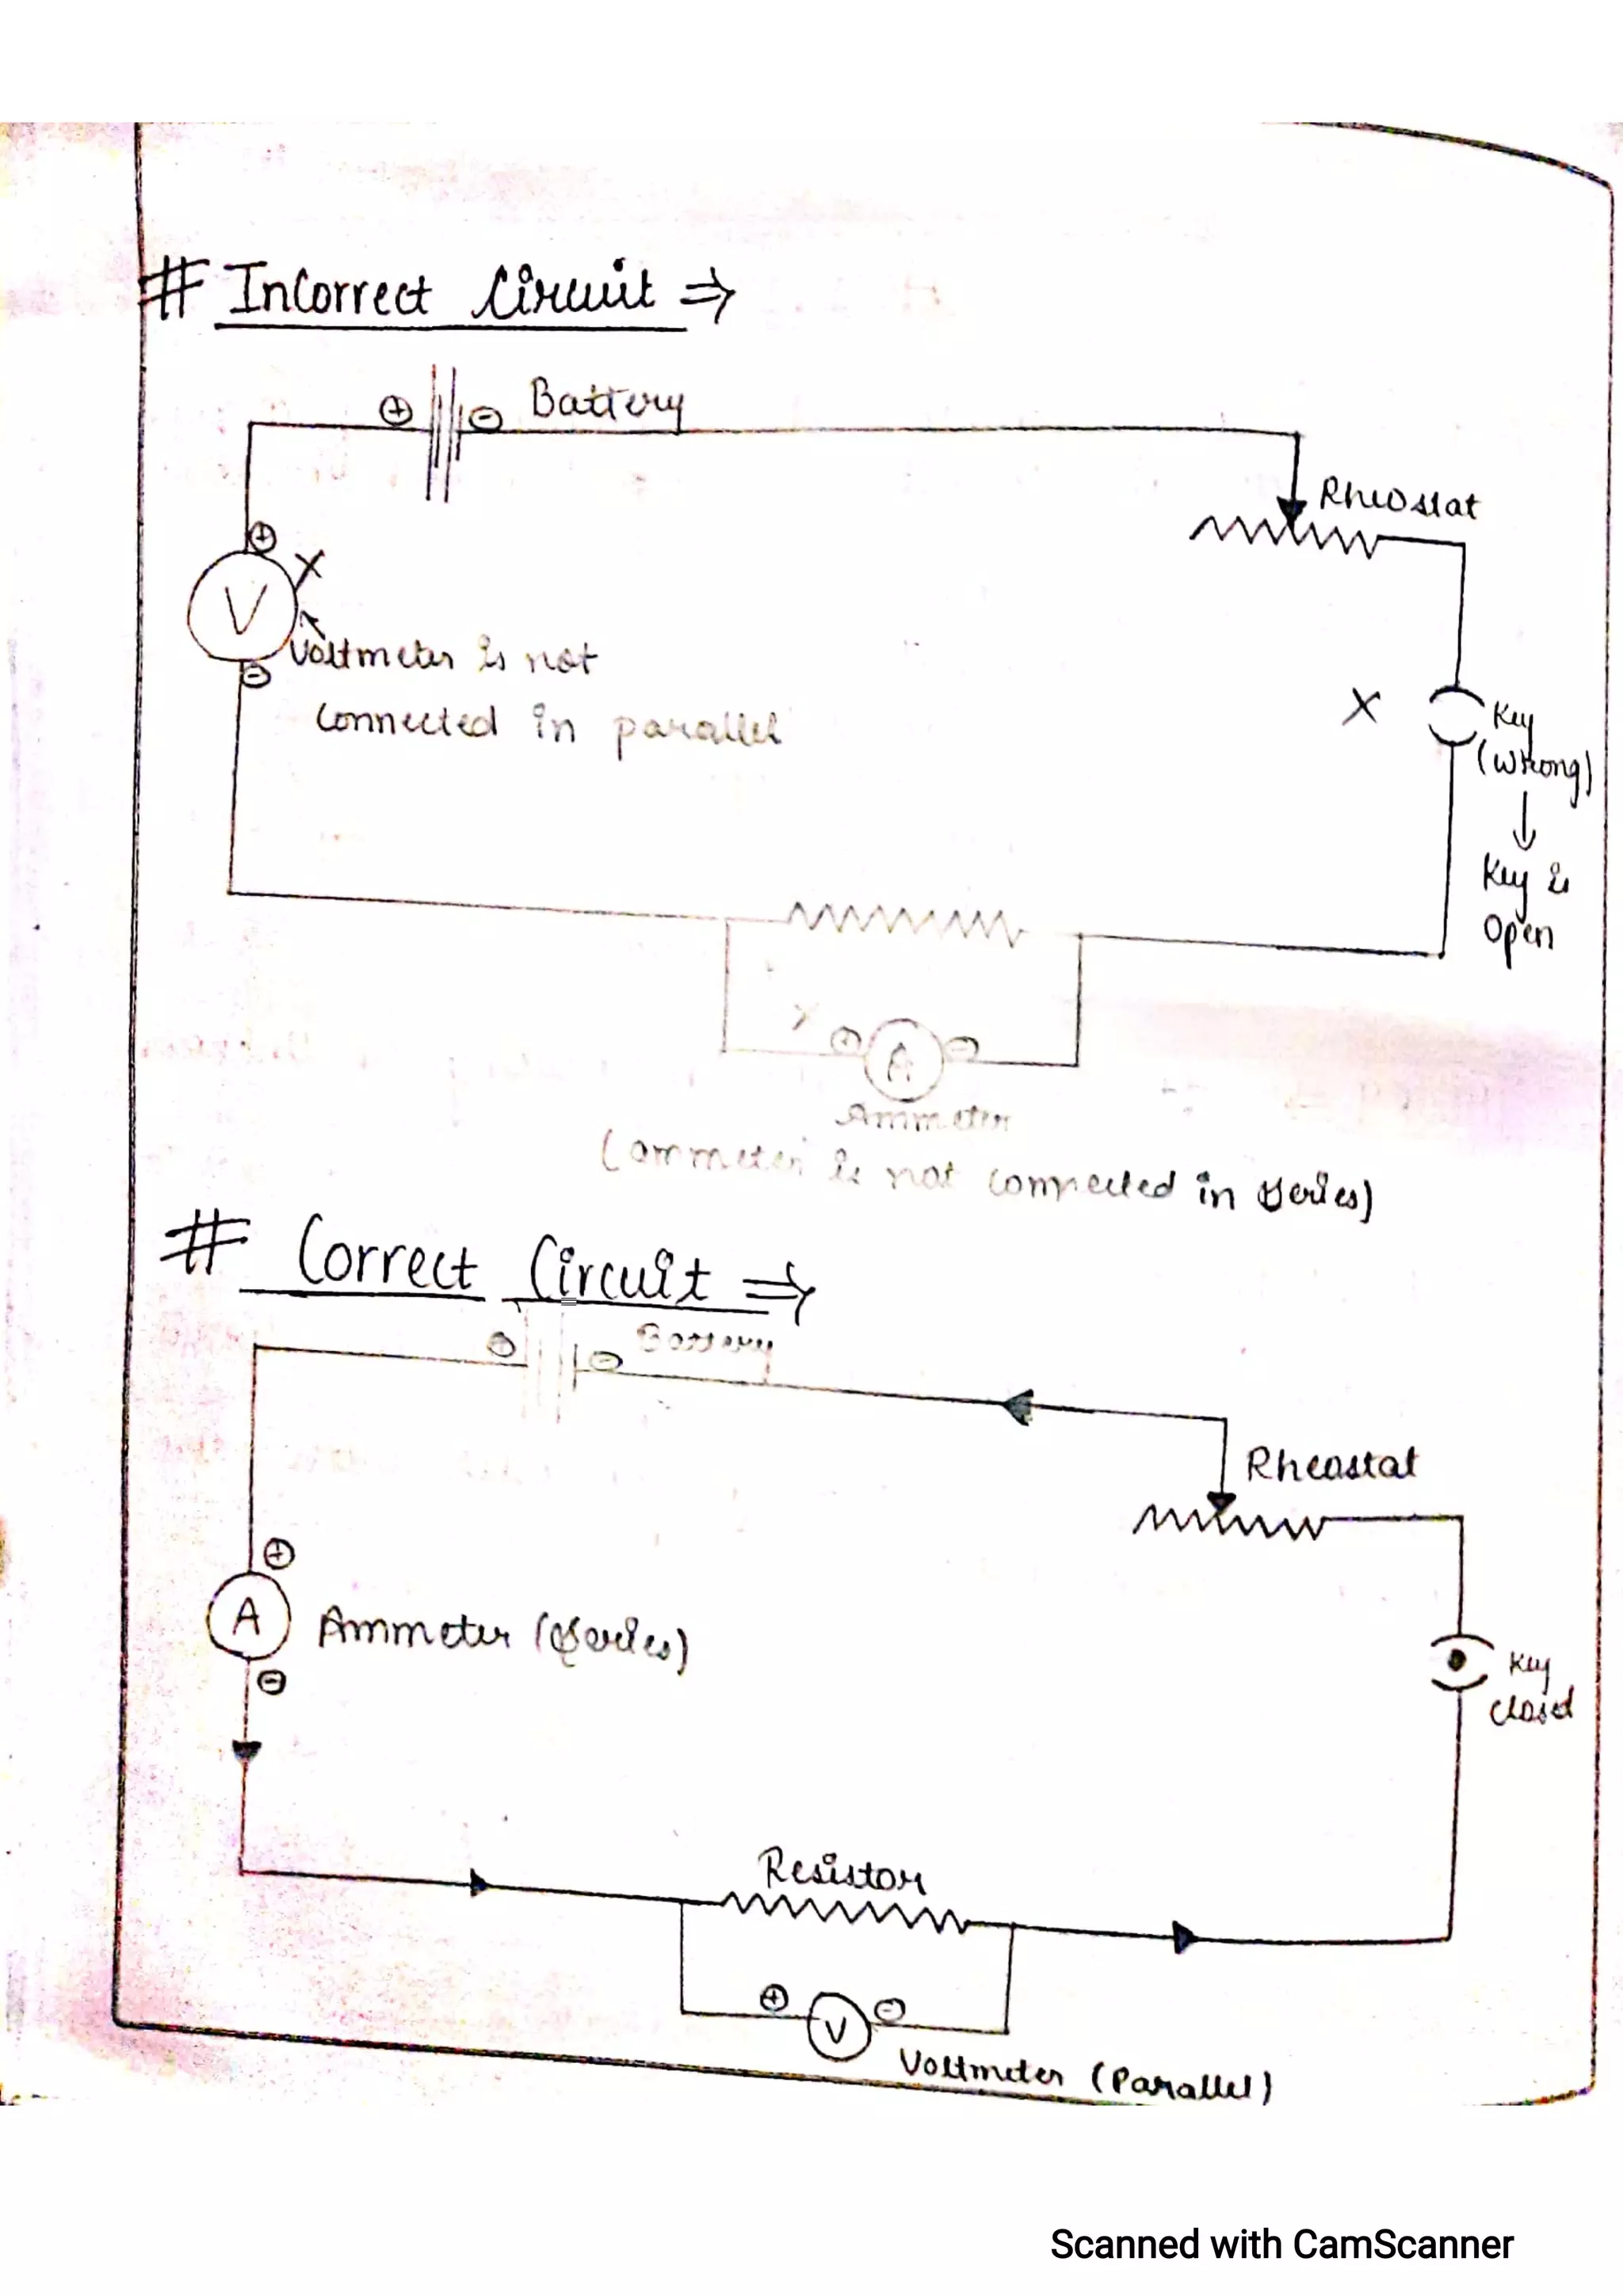 # Incorrect Circuit ⇒
⊕ ⊖ Battery
Rheostat
⊕ X
V
Voltmeter is not
⊖
connected in parallel
X Key
(Wrong)
↓
Key is
Open
X ⊕ A ⊖
Ammeter
(ammeter is not connected in series)
# Correct Circuit ⇒
⊕ ⊖ Battery
Rheostat
⊕
A Ammeter (Series)
⊖
Key
closed
Resistor
⊕ V ⊖
Voltmeter (Parallel)
Scanned with CamScanner